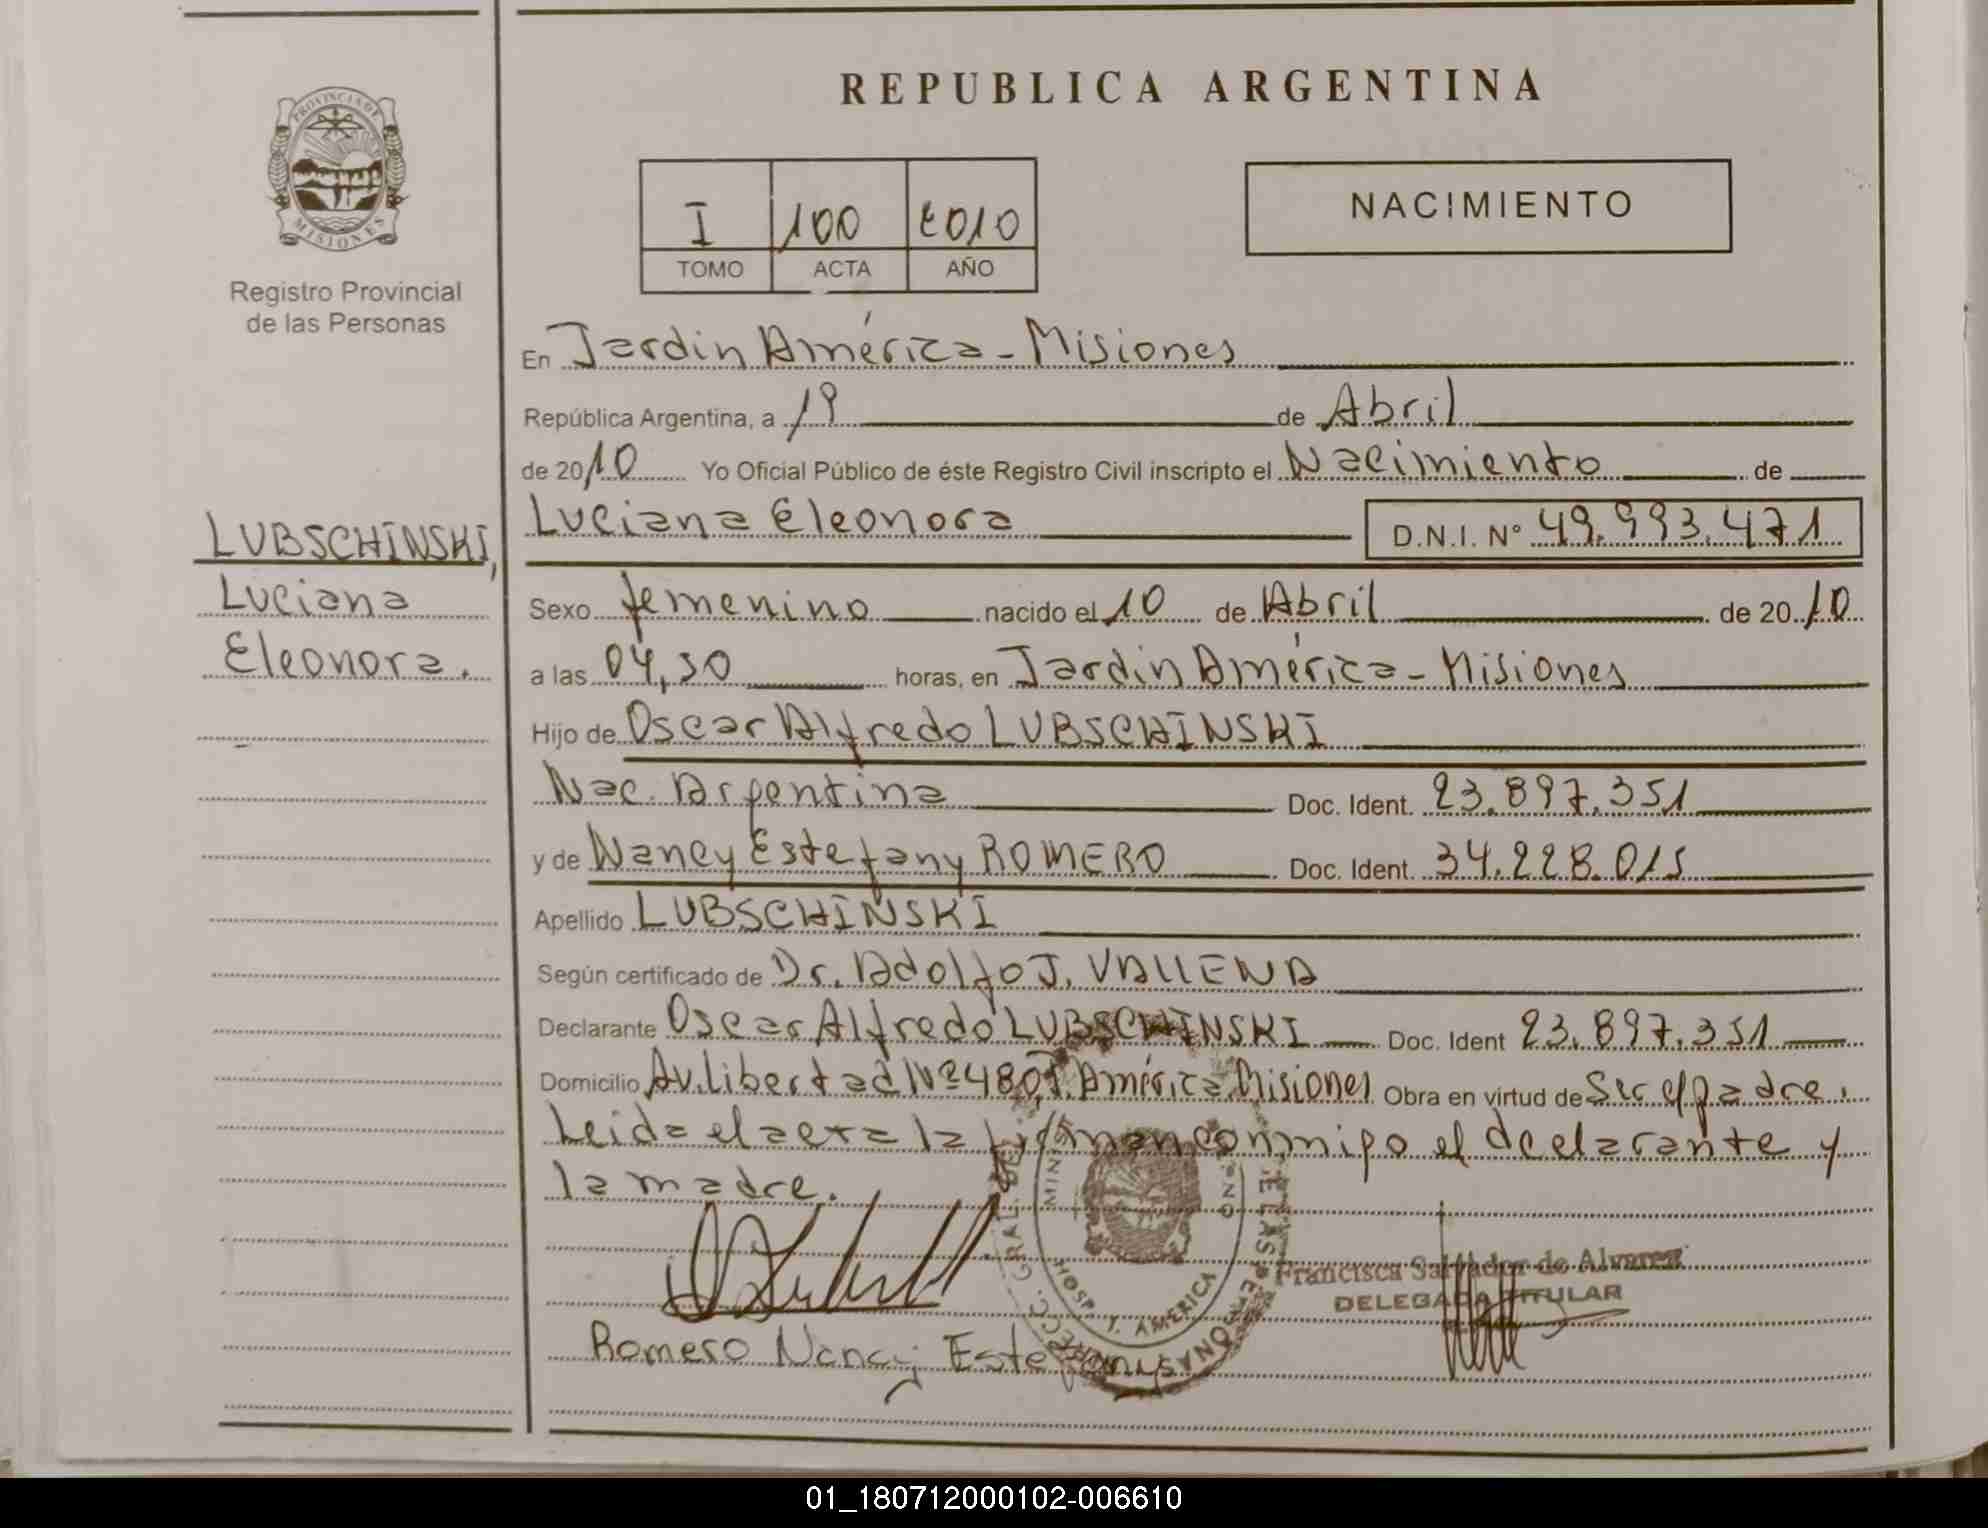 REPUBLICA ARGENTINA
PROVINCIA DE
MISIONES
Registro Provincial
de las Personas
I 100 2010
TOMO ACTA AÑO
NACIMIENTO
En Jardin América - Misiones
República Argentina, a 19 de Abril
de 2010 Yo Oficial Público de éste Registro Civil inscripto el Nacimiento de
Luciana Eleonora D.N.I. Nº 49.993.471
LUBSCHINSKI,
Luciana
Eleonora.
Sexo femenino nacido el 10 de Abril de 2010
a las 04,30 horas, en Jardin América - Misiones
Hijo de Oscar Alfredo LUBSCHINSKI
Nac. Argentina Doc. Ident. 23.897.351
y de Nancy Estefany ROMERO Doc. Ident. 34.228.015
Apellido LUBSCHINSKI
Según certificado de Dr. Adolfo J. VALLENA
Declarante Oscar Alfredo LUBSCHINSKI Doc. Ident 23.897.351
Domicilio Av. Libertad Nº 480, J. América Misiones Obra en virtud de Ser el padre.
Leida el acta la firman conmigo el declarante y
la madre.
HOSP. J. AMERICA
Francisca Salvador de Alvarez
DELEGADA TITULAR
Romero Nancy Estefany
01_180712000102-006610